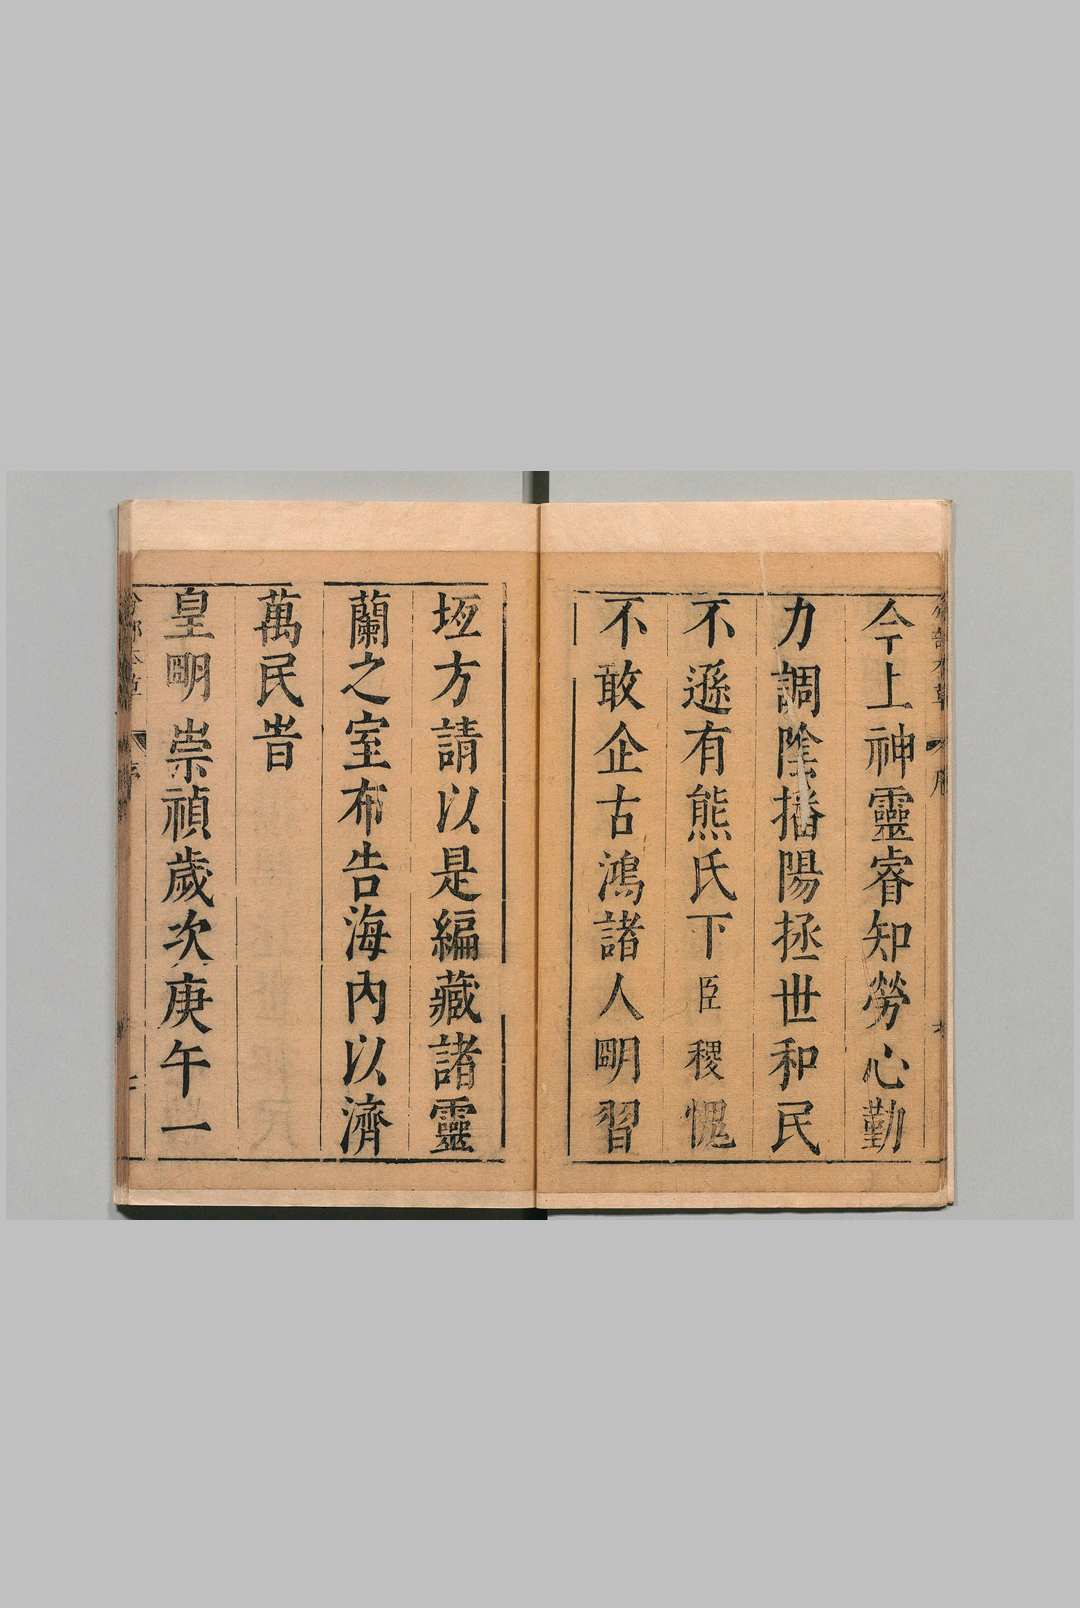 今上神靈睿知勞心勤
力調陰播陽拯世和民
不遜有熊氏下臣稷愧
不敢企古鴻諸人朙習
垣方請以是編藏諸靈
蘭之室布告海內以濟
萬民旹
皇朙崇禎歲次庚午一